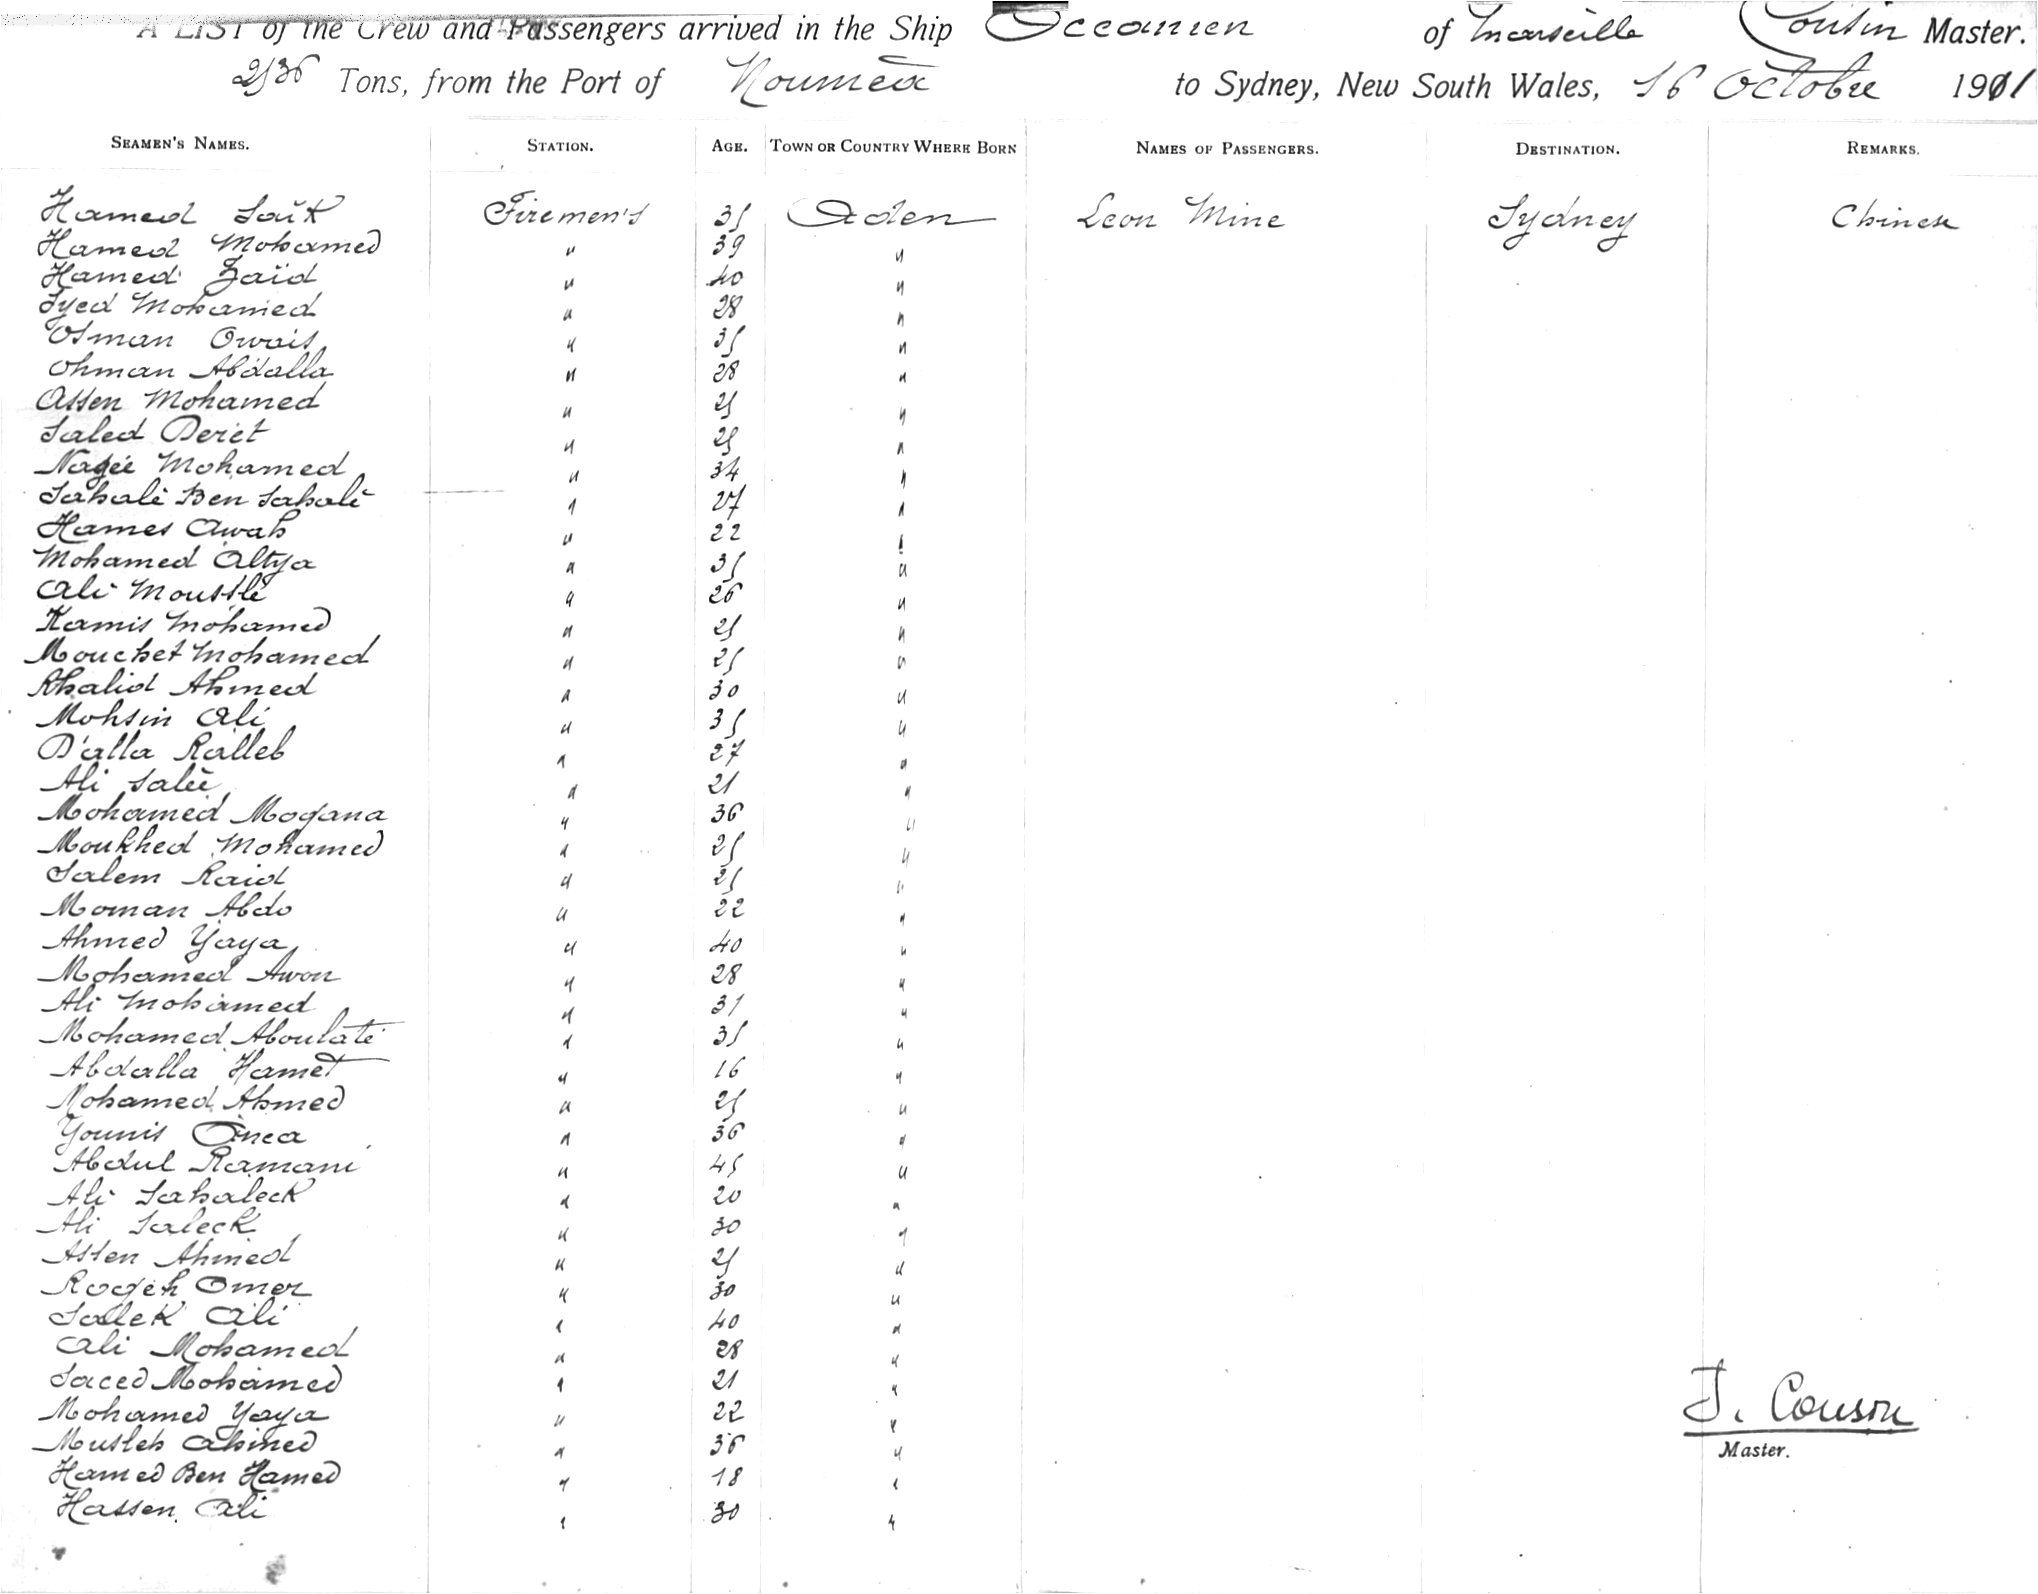 A LIST of the Crew and Passengers arrived in the Ship Oceanien of Marseille Cousin Master.
2536 Tons, from the Port of Nouméa to Sydney, New South Wales, 16 Octobre 1901
SEAMEN'S NAMES. STATION. AGE. TOWN OR COUNTRY WHERE BORN NAMES OF PASSENGERS. DESTINATION. REMARKS.
Hamed Saïk Firemen's 35 Aden Leon Mine Sydney Chinese
Hamed Mohamed " 39 "
Hamed Zaïd " 40 "
Syed Mohamed " 28 "
Osman Owais " 35 "
Ohman Abdalla " 28 "
Assen Mohamed " 25 "
Saled Deriet " 25 "
Nagée Mohamed " 34 "
Sahalé Ben Sahalé " 27 "
Hames Awah " 22 "
Mohamed Altya " 35 "
Ali Mousslé " 26 "
Kamis Mohamed " 25 "
Mouchet Mohamed " 25 "
Khalid Ahmed " 30 "
Mohsin Ali " 35 "
D'alla Ralleb " 27 "
Ali Salée " 21 "
Mohamed Mogana " 36 "
Moukhed Mohamed " 25 "
Salem Raid " 25 "
Moman Abdo " 22 "
Ahmed Yaya " 40 "
Mohamed Awon " 28 "
Ali Mohamed " 31 "
Mohamed Aboulaté " 35 "
Abdalla Hamet " 16 "
Mohamed Ahmed " 25 "
Younis " 36 "
Abdul Ramani " 45 "
Ali Sahaleck " 20 "
Ali Saleck " 30 "
Assen Ahmed " 25 "
Rogeh Omer " 30 "
Sallek Ali " 40 "
Ali Mohamed " 28 "
Saced Mohamed " 21 "
Mohamed Yaya " 22 "
Musleh Ahmed " 36 "
Hamed Ben Hamed " 18 "
Hassen Ali " 30 "
Master.